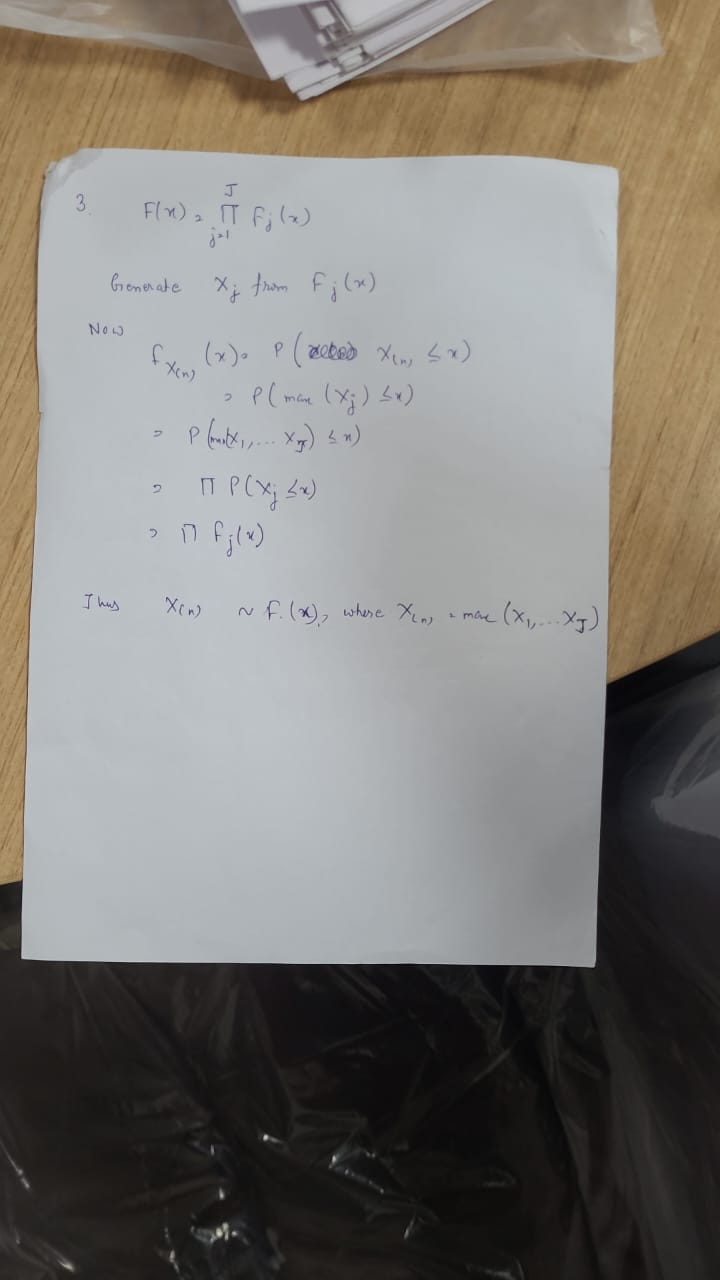 3. F(x) = J ∏ j=1 Fj(x)
Generate Xj from Fj(x)
Now
f X(n) (x) = P( X(n) ≤ x)
= P( max (Xj) ≤ x)
= P(max(X1,... XJ) ≤ x)
= ∏ P(Xj ≤ x)
= ∏ fj(x)
Thus X(n) ~ F.(x), where X(n) = max (X1,... XJ)